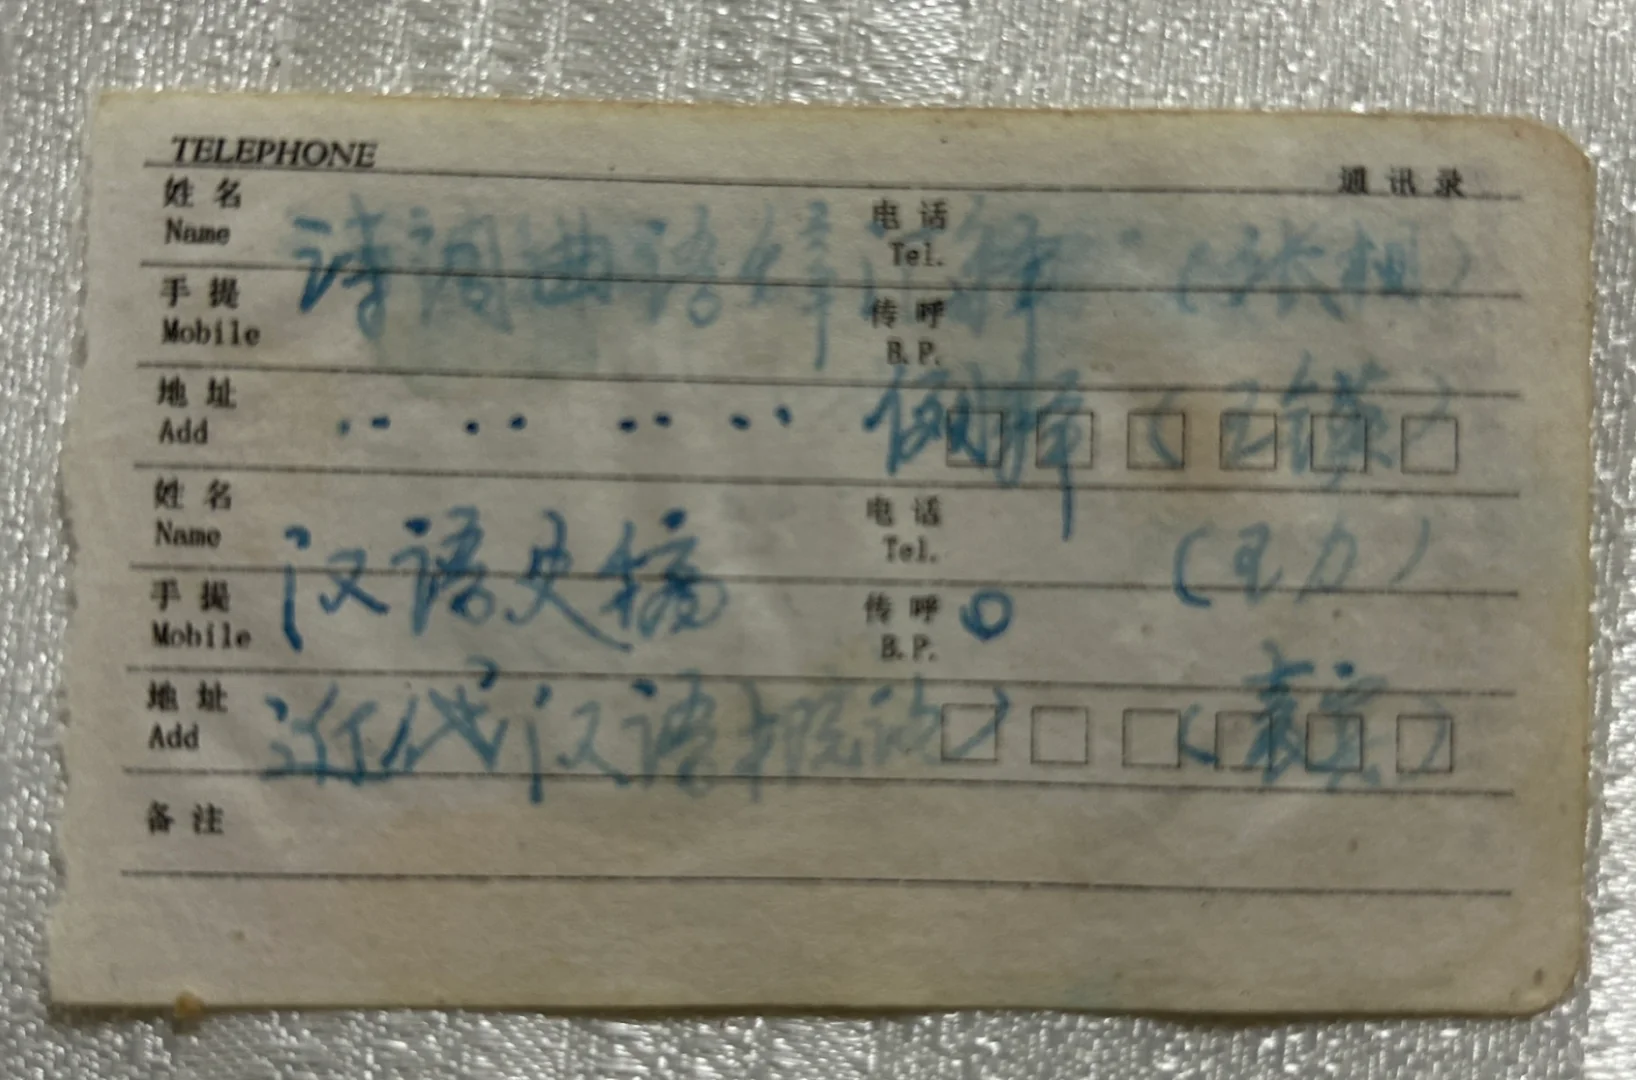 TELEPHONE
通讯录
姓名 Name 电话 Tel.
诗词曲语辞汇释 (张相)
手提 Mobile 传呼 B.P.
地址 Add
‥ ‥ ‥ ‥ 例释 (王锳)
姓名 Name 电话 Tel.
汉语史稿 (王力)
手提 Mobile 传呼 B.P.
地址 Add
近代汉语概论 (袁宾)
备注